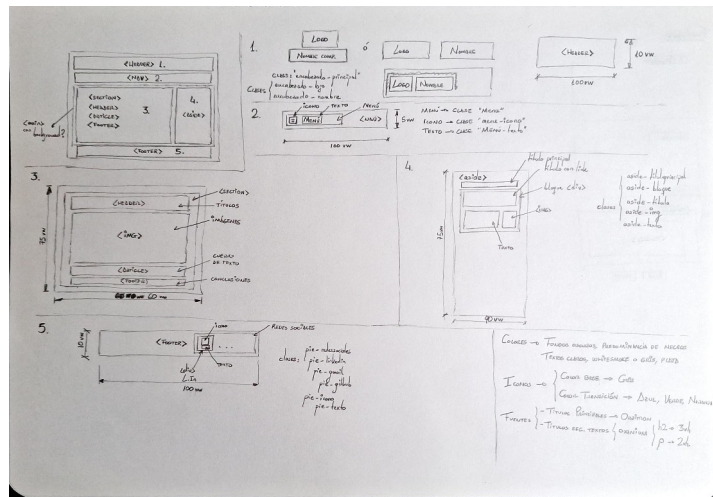 <HEADER> 1.
<NAV> 2.
<SECTION>
<HEADER>
<ARTICLE>
<FOOTER>
3.
4.
<ASIDE>
<MAIN>
con
background?
<FOOTER> 5.
1.
LOGO
NOMBRE COMP.
ó
LOGO NOMBRE
<HEADER>
10 vw
100 vw
CLASES
CLASS: "encabezado-principal"
encabezado-hijo
encabezado-nombre
LOGO NOMBRE
2.
ICONO TEXTO MENÚ
MENÚ <NAV>
5 vw
100 vw
MENÚ → CLASE "MENU"
ICONO → CLASE "menu-icono"
TEXTO → CLASE "MENU-texto"
3.
<HEADER>
<IMG>
<ARTICLE>
<FOOTER>
<SECTION>
TÍTULOS
IMÁGENES
CUERPO
DE TEXTO
CONCLUSIONES
75 vw
60 vw
4.
<aside>
título principal
título con link
bloque <div>
TEXTO
75 vw
40 vw
clases
aside-bloque
aside-título
aside-img
aside-texto
5.
10 vw
<FOOTER>
ICONO
REDES SOCIALES
...
TEXTO
100 vw
clases:
pie-linkedin
pie-gmail
pie-github
pie-icono
pie-texto
COLORES → FONDOS OSCUROS, PREDOMINANCIA DE NEGROS
TEXTOS CLAROS, WHITESMOKE O GRIS, PLATA
ICONOS →
COLOR BASE → GRIS
COLOR TRANSICIÓN → AZUL, VERDE, NARANJA
FUENTES
- TÍTULOS PRINCIPALES →
- TÍTULOS SEC. TEXTOS
h2 →
p →